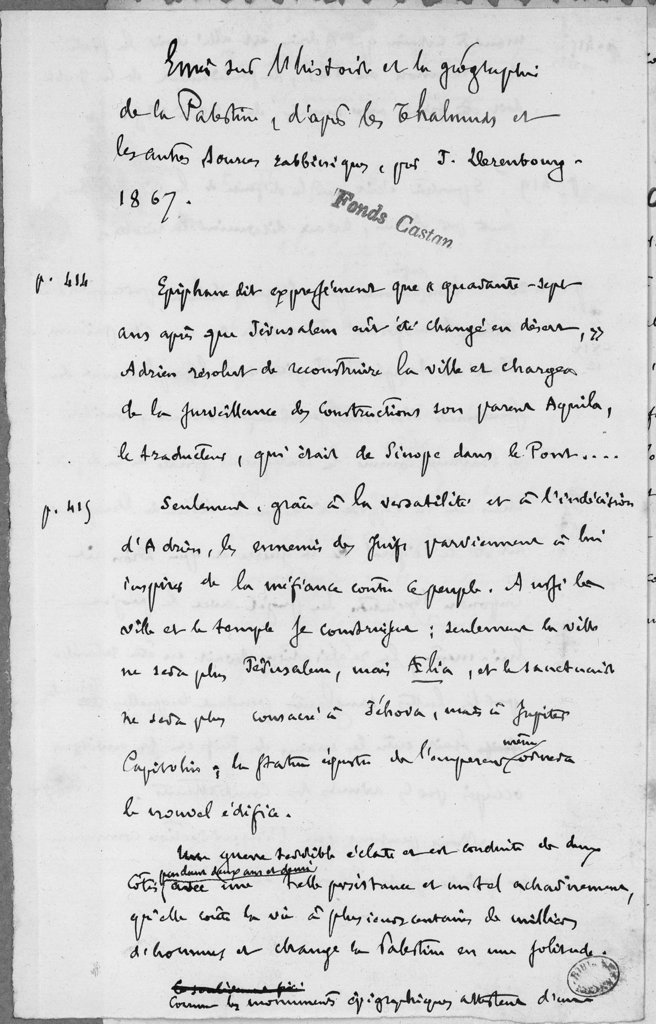 Essai sur l'histoire et la géographie
de la Palestine, d'après les Thalmuds et
les autres sources rabbiniques, par J. Derenbourg -
1867.
Fonds Castan
p. 414
Epiphane dit expressément que « quarante-sept
ans après que Jérusalem eût été changé en désert, »
Adrien résolut de reconstruire la ville et chargea
de la surveillance des constructions son parent Aquila,
le traducteur, qui était de Sinope dans le Pont....
p. 415
Seulement, grâce à la versatilité et à l'indécision
d'Adrien, les ennemis des Juifs parviennent à lui
inspirer de la méfiance contre ce peuple. Aussi la
ville et le temple se construisent ; seulement la ville
ne sera plus Jérusalem, mais Ælia, et le sanctuaire
ne sera plus consacré à Jéhova, mais à Jupiter
Capitolin ; la statue équestre de l'empereur même ornera
le nouvel édifice.
Une guerre terrible éclate et est conduite de deux
pendant deux ans et demi
côtés avec une telle persistance et un tel acharnement,
qu'elle coûte la vie à plusieurs centaines de milliers
d'hommes et change la Palestine en une solitude.
Comme les monuments épigraphiques attestent d'une